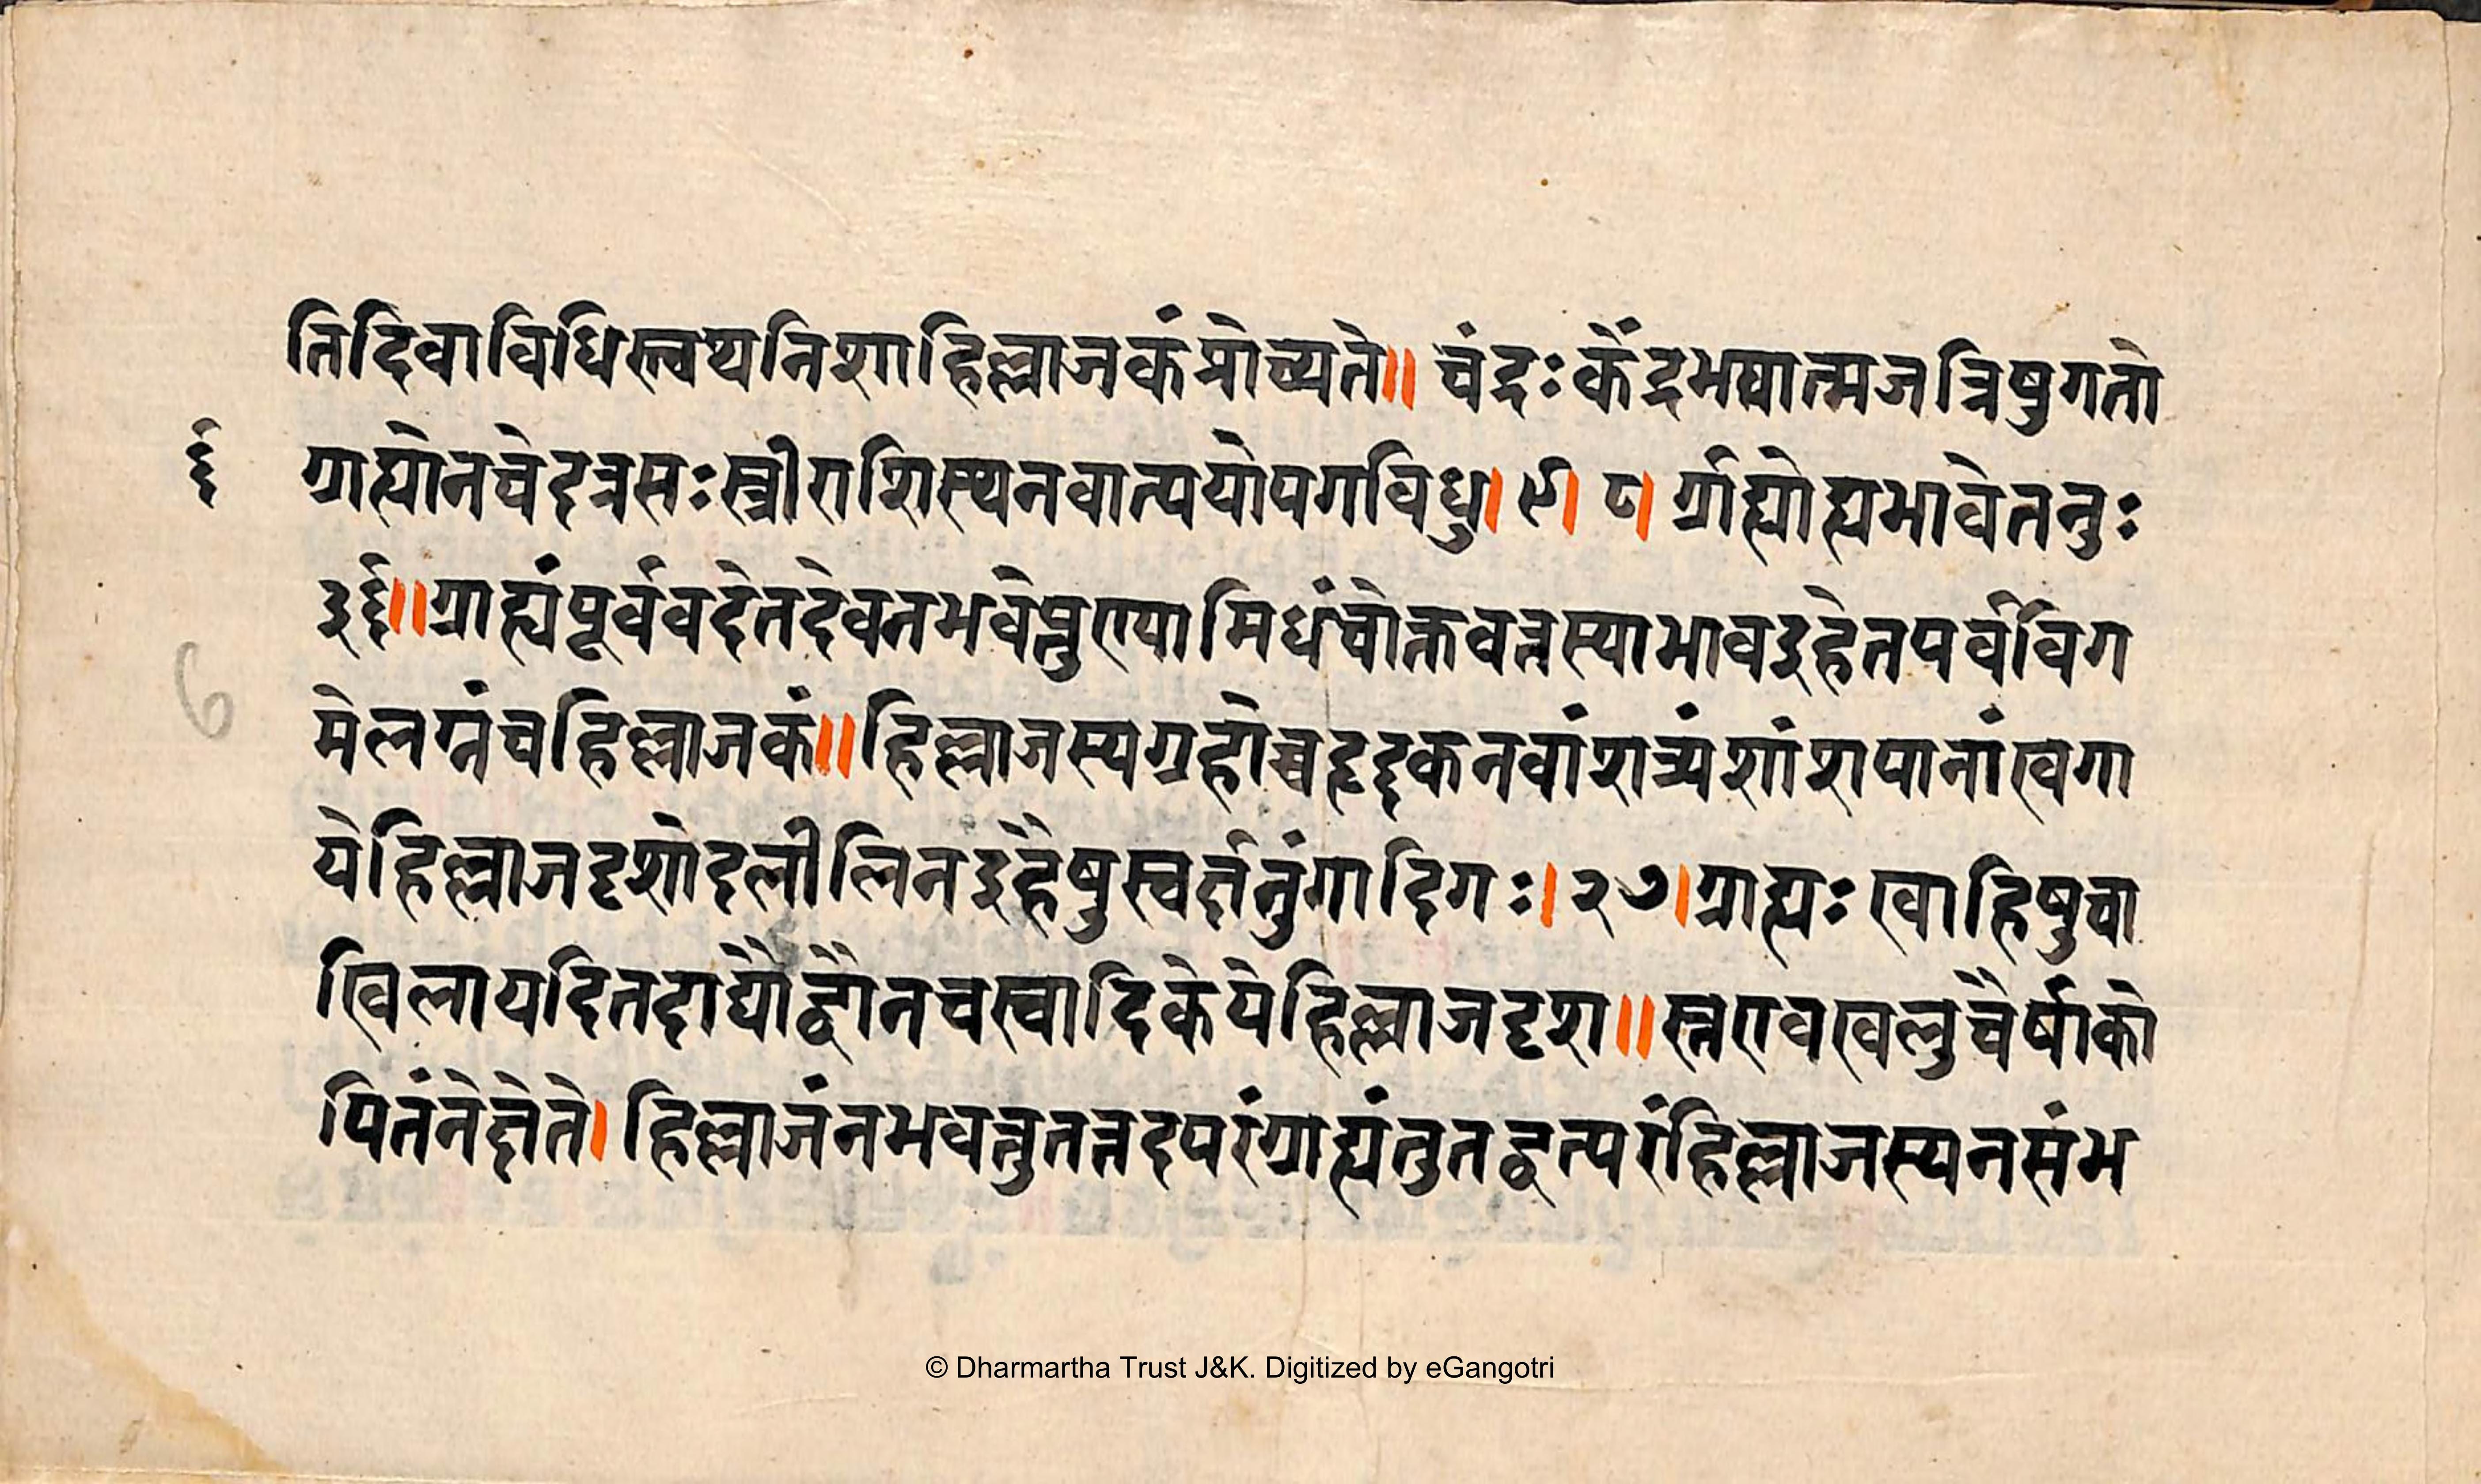 तिदिवाविधिस्त्वथनिशाहिल्लाजकंप्रोच्यते॥ चंद्रःकेंद्रभषात्मजत्रिषुगतो
६ ग्राह्योनचेदत्रसःस्त्रीराशिस्थनवात्पयोपगविधु। ९। ८। र्ग्राह्योह्यभावेतनुः
३६॥ग्राह्यंपूर्ववदेतदेवतभवेत्पुण्याभिधंचोक्तवत्तस्याभावइहेतपर्वविग
मेलग्नंचहिल्लाजकं॥हिल्लाजस्यग्रहोच्चदृद्दकनवांशत्र्यंशांशपानांखगा
येहिल्लाजदृशोद्दलीलिनइहैषुस्वर्त्ततुंगादिगः। २७।ग्राह्यः खाद्दिषुचा
खिलायदितदाद्यौद्वौनचस्वादिकेयेहिल्लाजदृश॥स्तएवखलुचैर्षाको
पितंनेद्दोते। हिल्लाजंनभवत्तुतत्तदपरंग्राह्यंतुतद्वत्परंहिल्लाजस्यनसंभ
6
© Dharmartha Trust J&K. Digitized by eGangotri